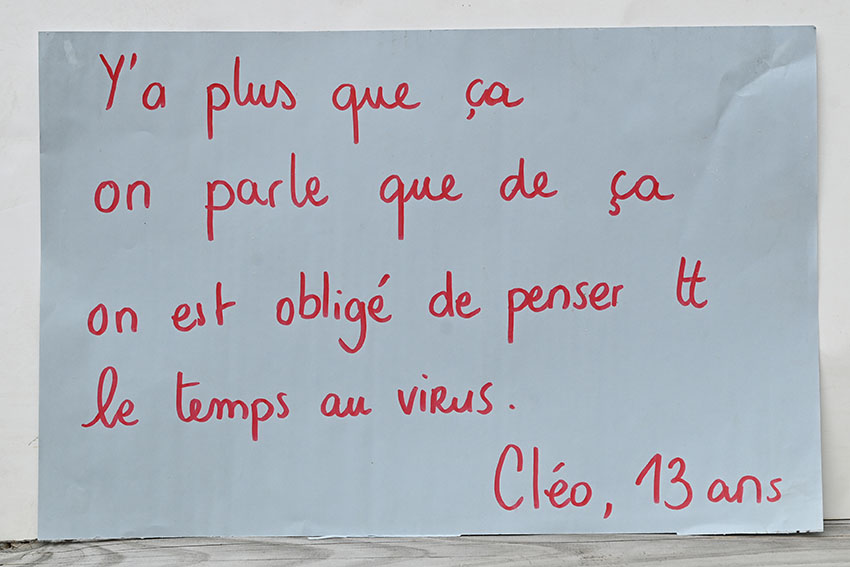 Y'a plus que ça
on parle que de ça
on est obligé de penser tt
le temps au virus.
Cléo, 13 ans